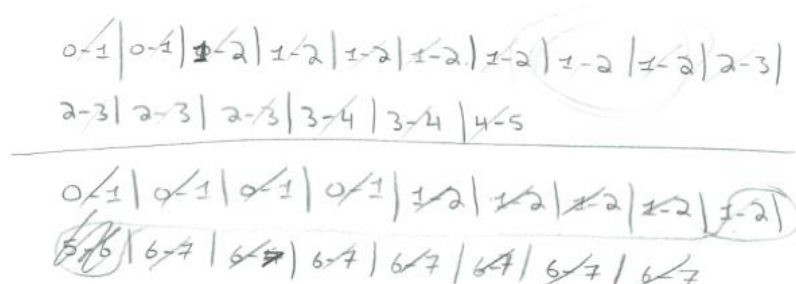 0-1 | 0-1 | 1-2 | 1-2 | 1-2 | 1-2 | 1-2 | 1-2 | 1-2 | 2-3 |
2-3 | 2-3 | 2-3 | 3-4 | 3-4 | 4-5
0-1 | 0-1 | 0-1 | 0-1 | 1-2 | 1-2 | 1-2 | 1-2 | 1-2 |
5-6 | 6-7 | 6-7 | 6-7 | 6-7 | 6-7 | 6-7 | 6-7